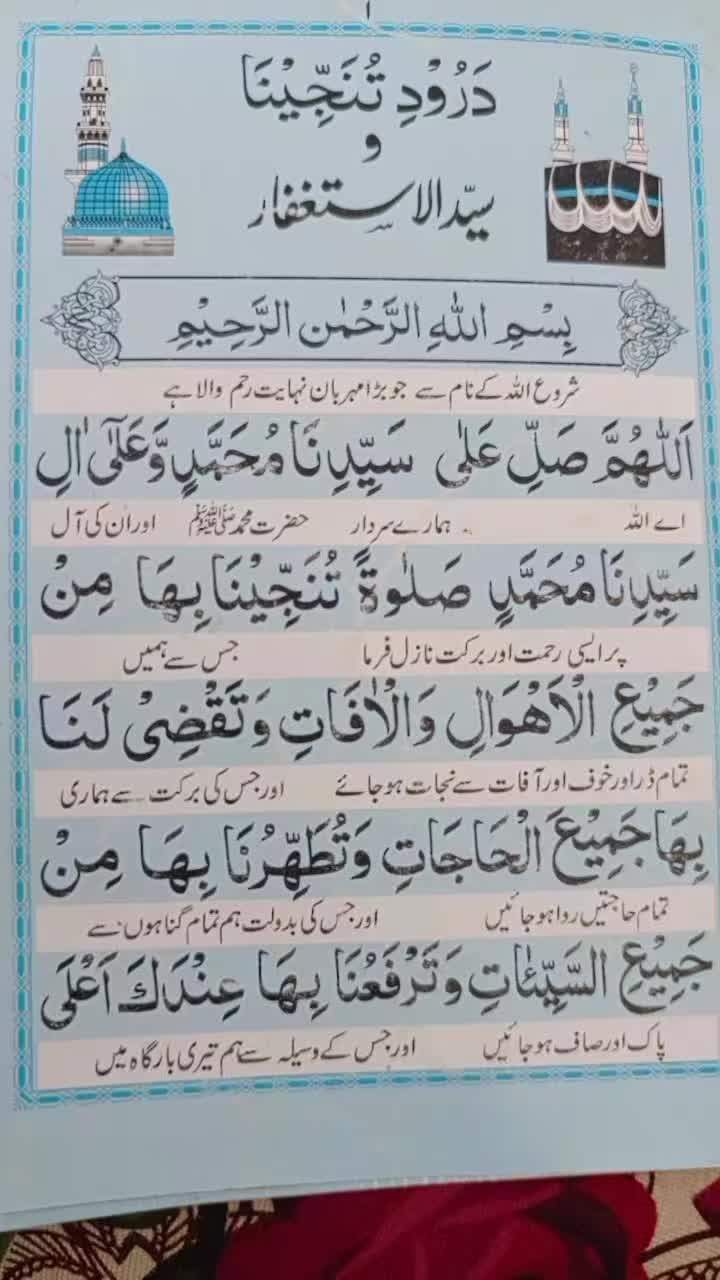 ١
دَرُوْدِ تُنَجِّيْنَا
و
سيّد الاستغفار
بِسْمِ اللهِ الرَّحْمٰنِ الرَّحِيْمِ
شروع اللہ کے نام سے جو بڑا مہربان نہایت رحم والا ہے
اَللّٰهُمَّ صَلِّ عَلٰى سَيِّدِنَا مُحَمَّدٍ وَّعَلٰٓى اٰلِ
اے اللہ ہمارے سردار حضرت محمد ﷺ اور ان کی آل
سَيِّدِنَا مُحَمَّدٍ صَلٰوةً تُنَجِّيْنَا بِهَا مِنْ
پر ایسی رحمت اور برکت نازل فرما جس سے ہمیں
جَمِيْعِ الْاَهْوَالِ وَالْاٰفَاتِ وَتَقْضِىْ لَنَا
تمام ڈر اور خوف اور آفات سے نجات ہوجائے اور جس کی برکت سے ہماری
بِهَا جَمِيْعَ الْحَاجَاتِ وَتُطَهِّرُنَا بِهَا مِنْ
تمام حاجتیں روا ہوجائیں اور جس کی بدولت ہم تمام گناہوں سے
جَمِيْعِ السَّيِّئٰاتِ وَتَرْفَعُنَا بِهَا عِنْدَكَ اَعْلَى
پاک اور صاف ہوجائیں اور جس کے وسیلہ سے ہم تیری بارگاہ میں